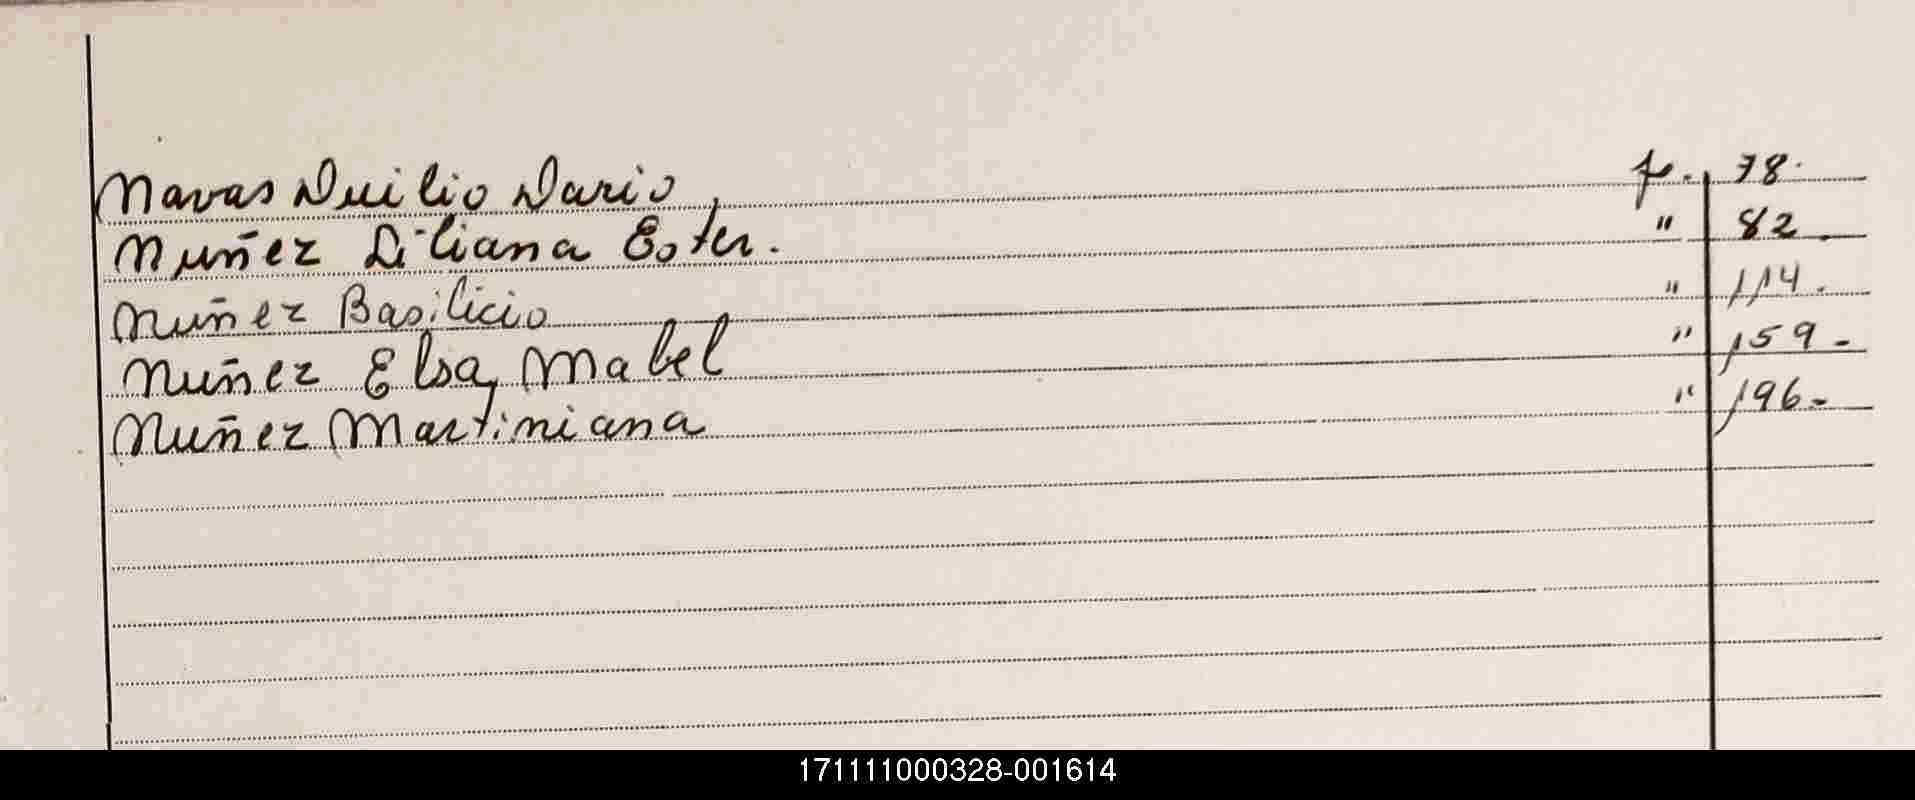 Navas Duilio Dario, f. 78.
Nuñez Liliana Ester. " 82.
Nuñez Basilicio " 114.
Nuñez Elsa Mabel " 159.-
Nuñez Martiniana " 196.-
171111000328-001614